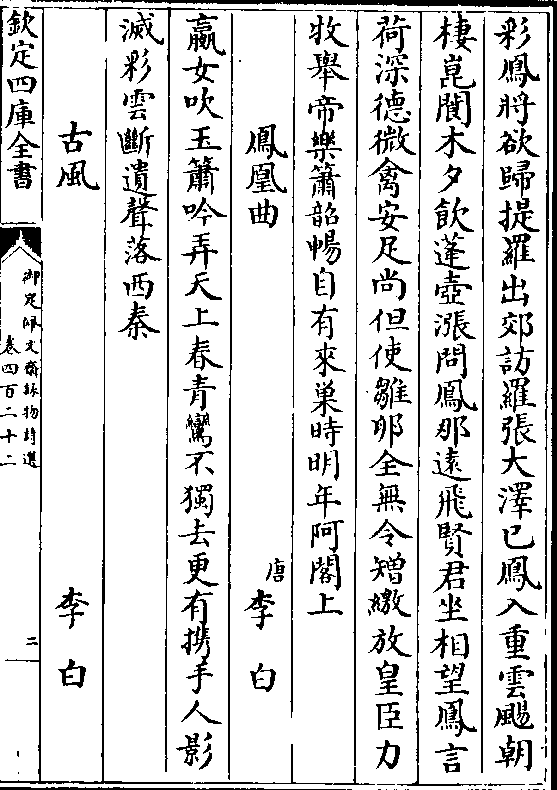 彩鳳將欲歸提羅出郊訪羅張大澤已鳳入重雲颺朝
棲崑閬木夕飲蓬壺漲問鳳那遠飛賢君坐相望鳳言
荷深德微禽安足尚但使雛卵全無令矰繳放皇臣力
牧舉帝樂簫韶暢自有來巢時明年阿閣上
鳳凰曲 唐李白
嬴女吹玉簫吟弄天上春青鸞不獨去更有攜手人影
滅彩雲斷遺聲落西秦
古風 李白
欽定四庫全書
御定佩文齋詠物詩選
卷四百二十二
二